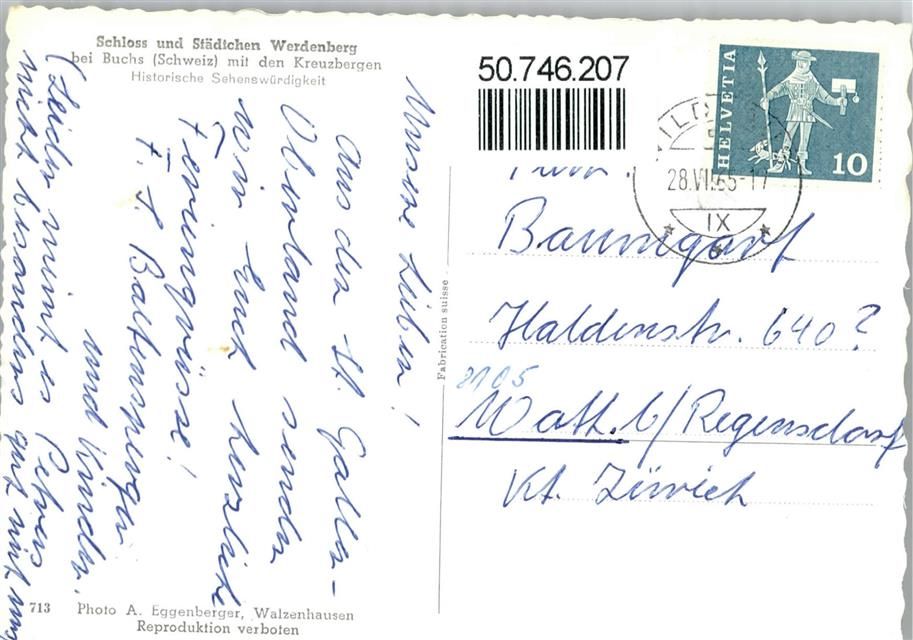 Schloss und Städtchen Werdenberg
bei Buchs (Schweiz) mit den Kreuzbergen
Historische Sehenswürdigkeit
Unsere Lieben!
Aus den St. Galler-
Oberland senden
wir Euch herzliche
Feriengrüsse!
F. + S. Baltensperger
und Kinder.
(Leider nimmt es Peters
nicht besonders gut mit
713
Photo A. Eggenberger, Walzenhausen
Reproduktion verboten
Fabrication suisse
50.746.207
HELVETIA
10
28.VII.65-17
IX
Baumgart
Haldenstr. 640?
8105
Watt. b/Regensdorf
Kt. Zürich